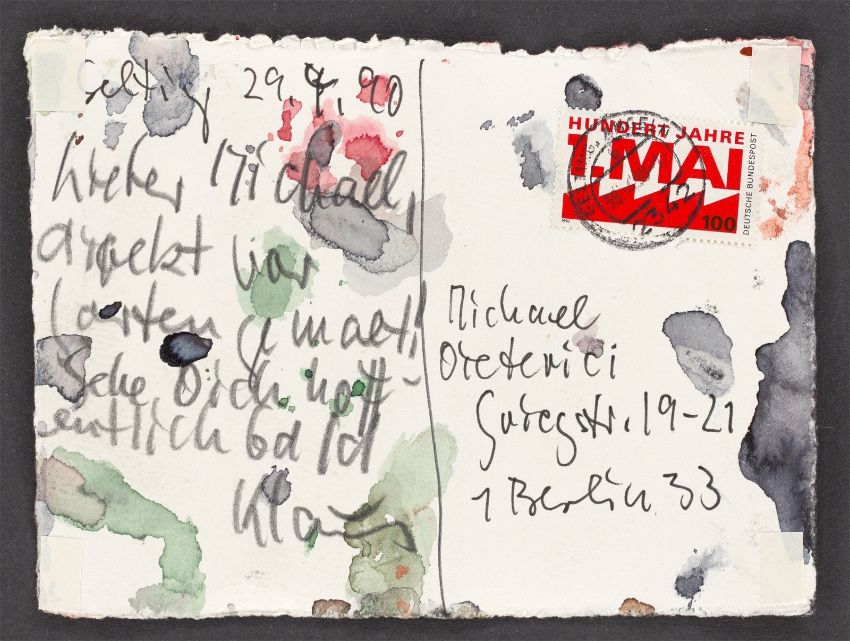 29.4.90
Lieber Michael,
direkt vor
Garten gemalt!
Sehe Dich hoff-
entlich bald
Klaus
HUNDERT JAHRE
1. MAI
100
DEUTSCHE BUNDESPOST
Michael
Dieterici
Griegstr. 19-21
1 Berlin 33